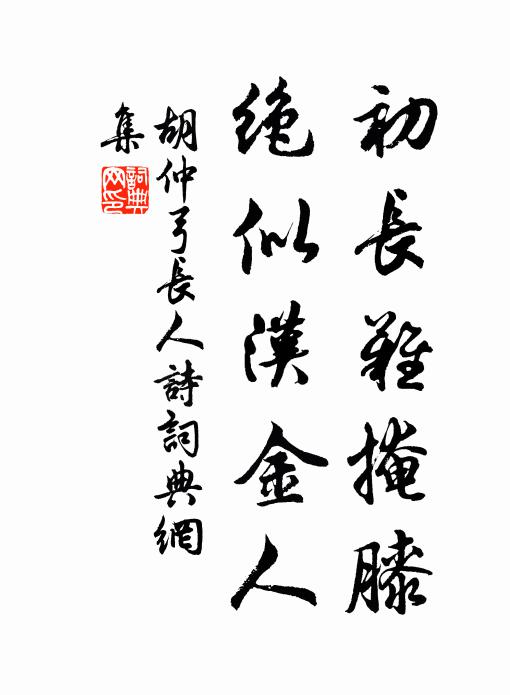 初長難掩膝
絶似漢金人
胡仲弓長人詩詞典網
集
詞典
网印